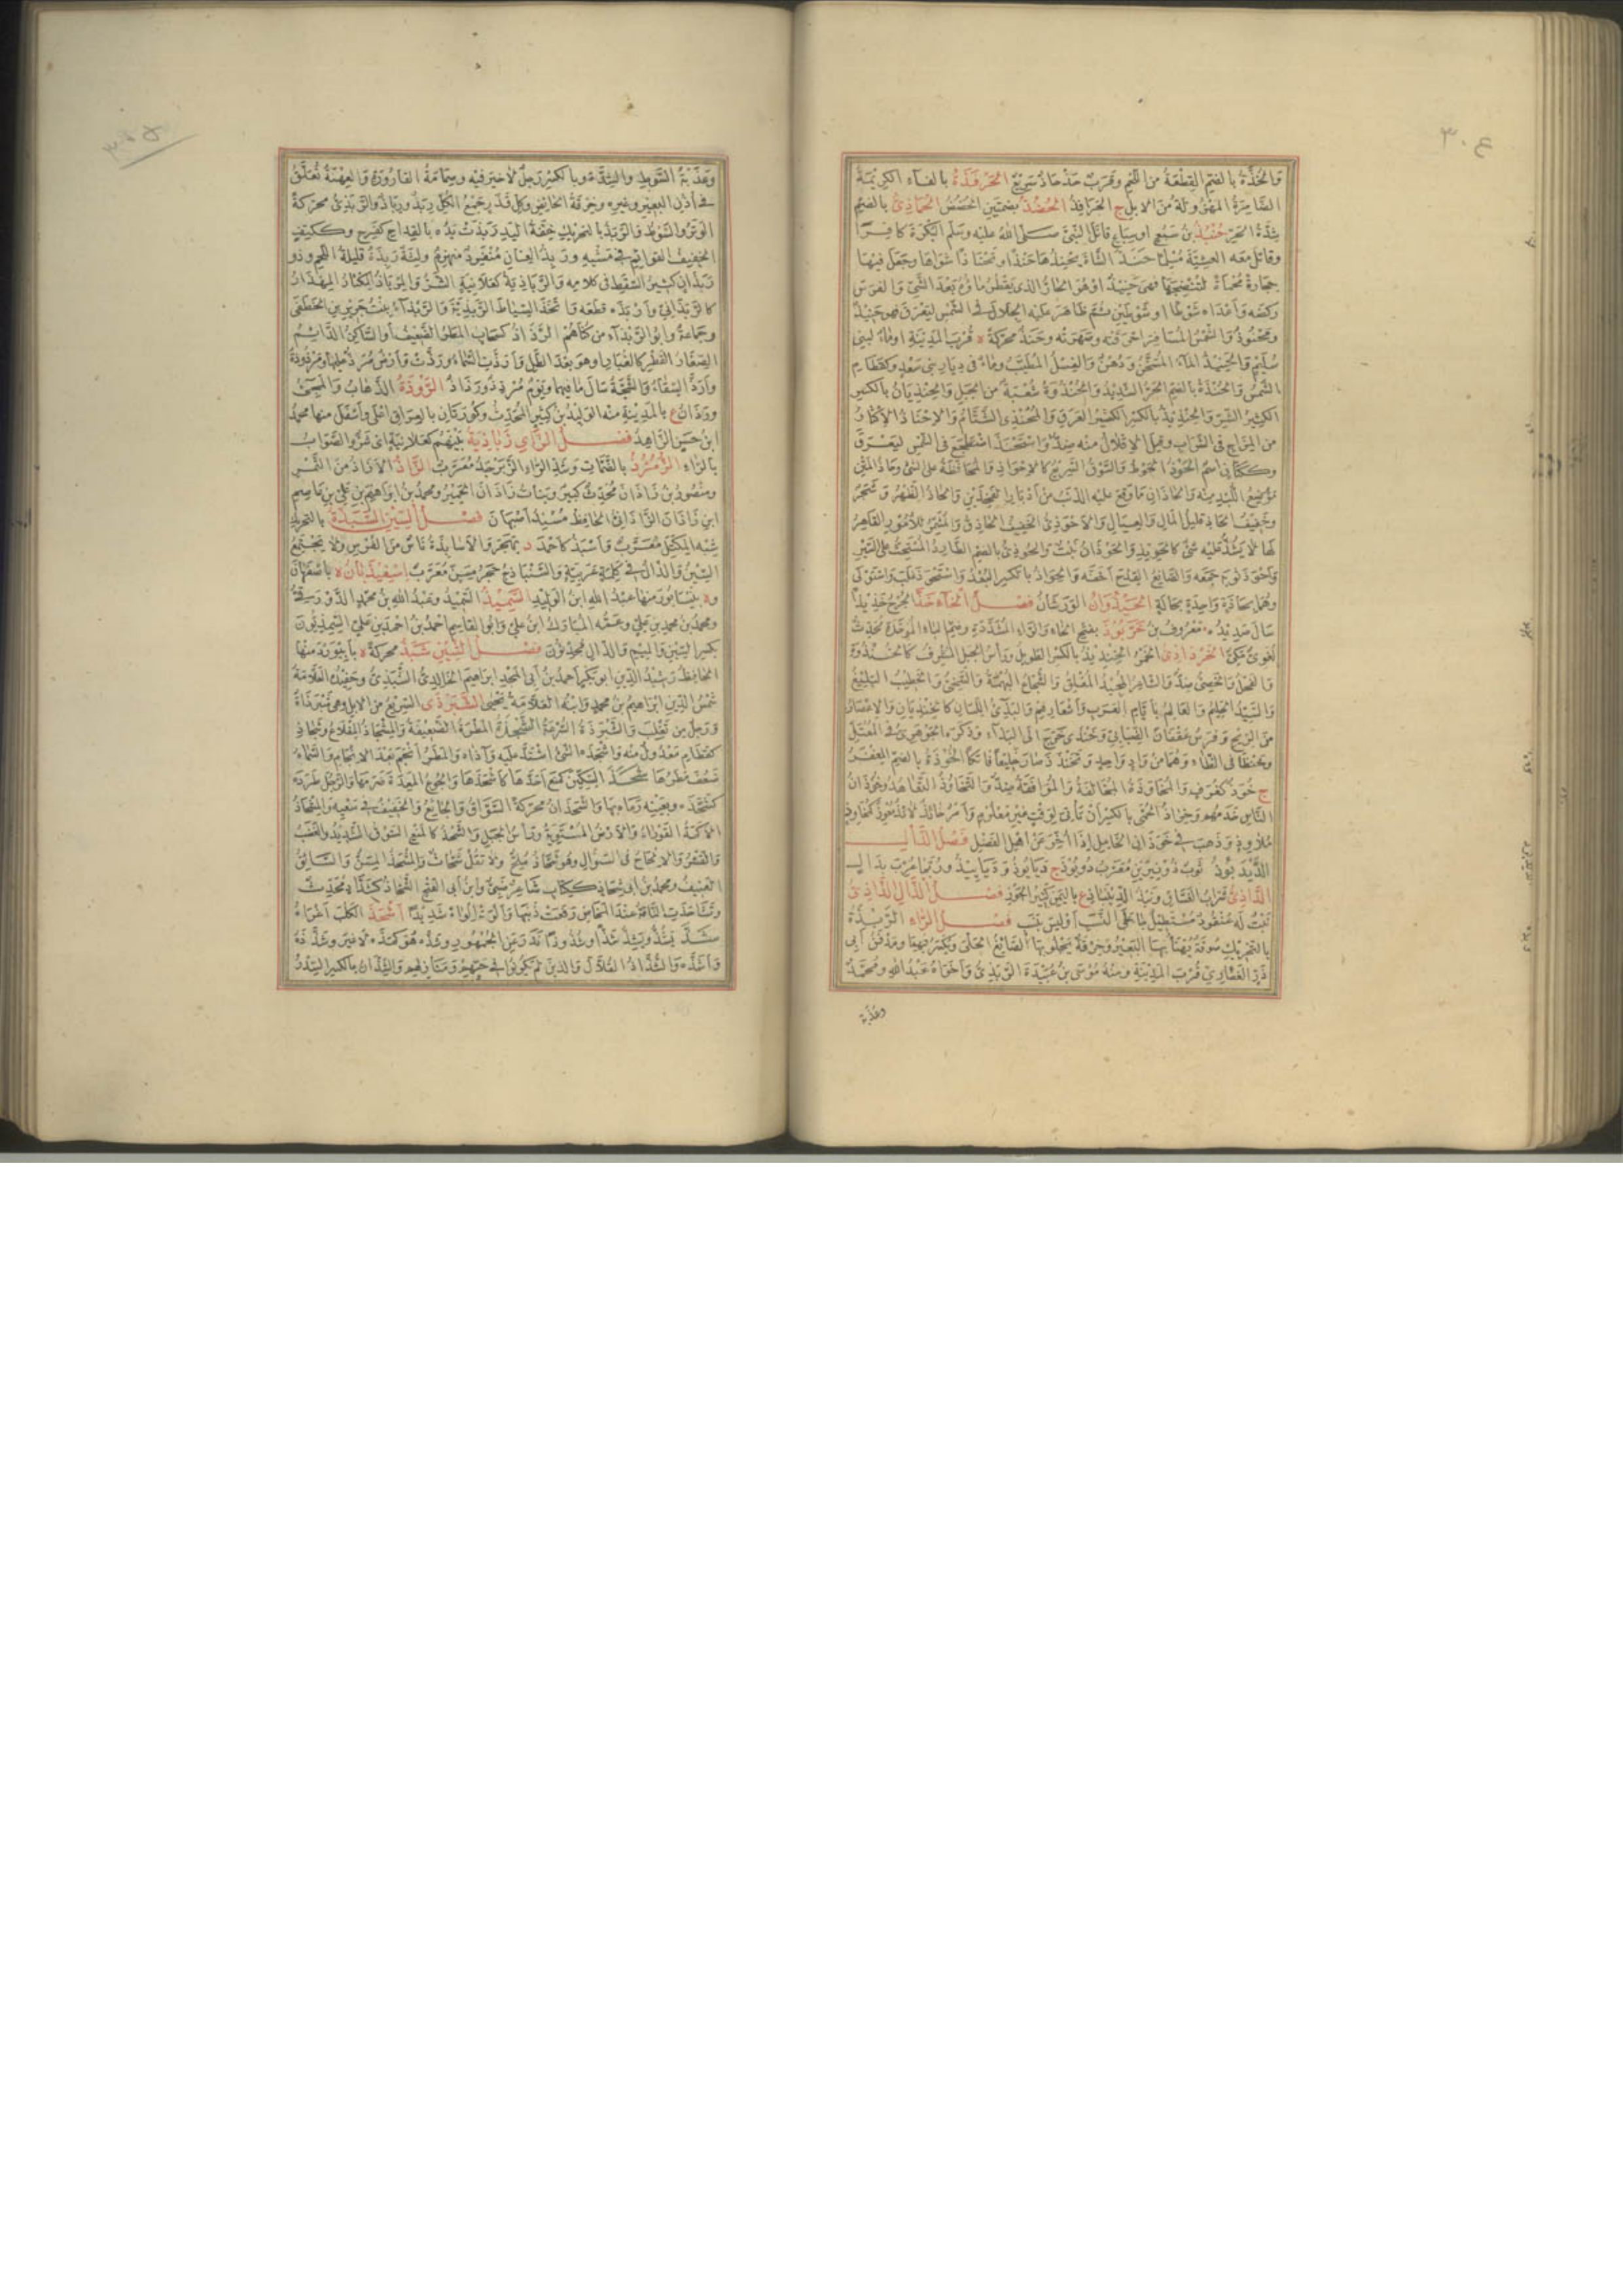 ٣٠٤
والحذة بالضم القطعة من اللحم وقرب حذحاذ سريع الحرفذة بالفاء الكريمة
الضامرة المهزولة من الابل ج الحرافذ الحضذ بضمتين الحضض الحماذي بالضم
شدة الحر حنبذ بن سبع او سباع قاتل النبي صلى الله عليه وسلم البكرة كافرا
وقاتل معه العشية مسلما حنذ الشاة يحنذها حنذا وتحناذا شواها وجعل فيها
حجارة محماة لتنضجها فهي حنيذ او هو الحار الذي يقطر ماؤه بعد الشي والفرس
ركضه واعداه شوطا او شوطين ثم ظاهر عليه الجلال في الشمس ليعرق فهو حنيذ
ومحنوذ والشمس المسافر احرقته وصهرته وحنذ محركة ة قرب المدينة او ماء لبني
سليم والحنيذ الماء المسخن ودهن والغسل المطيب وماء في ديار بني سعد وكقطام
الشمس والحنذة بالضم الحر الشديد والحنذوة شعبة من الجبل والحنذيان بالكسر
الكثير الشر والحنذيذ بالكسر الكثير العرق والمحنذي الشتام والاحناذ الاكثار
من المزاج في الشراب وقيل الاقلال منه ضد واستحنذ اضطجع في الشمس ليعرق
وككتاب اسم الحوذ الحوط والسوق السريع كالاحواذ والمحافظة على الشئ وحاذ المتن
موضع اللبد منه والحاذان ما وقع عليه الذنب من ادبار الفخذين والحاذ الظهر وشجر
وخفيف الحاذ قليل المال والعيال والاحوذي الخفيف الحاذق والمشمر للامور القاهر
لها لا يشذ عليه شئ كالحويذ والحوذان نبت والحوذي بالضم الطارد المستحث على السير
واحوذ ثوبه جمعه والصانع القدح اخفه والحواذ بالكسر البعد واستحوذ غلب واستولى
وهما بحاذة واحدة بحالة الحيذوان الورشان فصل الخاء خذ الجرح خذيذا
سال صديده معروف بن خربوذ بفتح الخاء والراء المشددة وضم الباء الموحدة محدث
لغوي مكي الخرداذي الخمر الخنذيذ بالكسر الطويل وراس الجبل المشرف كالخنذوة
والفحل والخصي ضد والشاعر المجيد المفلق والشجاع البهمة والسخي والخطيب البليغ
والسيد الحليم والعالم بايام العرب واشعارهم والبذئ اللسان كالخنذيان والاعصار
من الريح وفرس عقفان الضبابي وخنذى خرج الى البذاء وذكره الجوهري في المعتل
وخنظى في الظاء وهما من واد واحد وتخنذذ صار خليعا فاتكا الخوذة بالضم المغفر
ج خوذ كغرف والمخاوذة المخالفة والموافقة ضد والتخاوذ التعاهد وخوذان
الناس خدمهم وخواذ الحمى بالكسر ان تاتي لوقت غير معلوم وامر خائذ لائذ معوز كمخاوذ
ملاوذ وذهب في خوذان الخامل اذا اخر عن اهل الفضل فصل الدال
الديدبوذ ثوب ذو نيرين معرب دوبوذ ج ديابوذ وديابيذ وربما عرب بدال
فصل الذال الذاذي
نبت له عنقود مستطيل فصل الراء الربذة
بالتحريك صوفة يهنا بها البعير وخرقة يجلو بها الصائغ الحلي ويكسر فيهما ومدفن ابي
ذر الغفاري قرب المدينة ومنه موسى بن عبيدة الربذي واخواه عبد الله ومحمد
وعذبة
٣٠٥
وعذبة السوط والشدة وبالكسر رجل لا خير فيه وصمامة القارورة والعهنة تعلق
في اذن البعير وغيره وخرقة الحائض وكل قذر جمع الكل ربذ ورباذ والربذي محركة
الوتر والسوط والربذ بالتحريك خفة اليد ربذت يده بالقداح كفرح وككتف
الخفيف القوائم في مشيه وربذ العنان منفرد منهزم ولثة ربذة قليلة اللحم وذو
ربذات كثير السقط في كلامه والرباذية كعلانية الشر والمرباذ المكثار المهذار
كالربذاني واربذه قطعه واتخذ السياط الربذية والربذاء بنت جرير بن الخطفى
وجماعة وابو الربذاء من كناهم الرذاذ كسحاب المطر الضعيف او الساكن الدائم
الصغار القطر كالغبار او هو بعد الطل وارذت السماء ورذت وارض مرذ عليها ومرذوذة
وارذ السقاء والشجة سال ما فيهما ويوم مرذ ذو رذاذ الروذة الذهاب والمجئ
وراذان ع بالمدينة منه الوليد بن كثير المحدث وكورتان بالعراق اعلى واسفل منها محمد
ابن حسن الزاهد فصل الزاي زباذية بينهم كعلانية اي شر والصواب
بالراء الزمرذ بالضمات وشد الراء الزبرجد معرب الزاذ الازاذ من التمر
ومنصور بن زاذان محدث كبير وبنات زاذان الحمير ومحمد بن ابراهيم بن علي بن عاصم
ابن زاذان الزاذاني الحافظ مسند اصبهان فصل السين السبذة بالتحريك
شبه المكتل معرب واسبذ كاحمد د بهجر والاسابذة ناس من الفرس ولا يجتمع
السين والذال في كلمة عربية والسنباذج حجر مسن معرب اسفيذبان ة باصفهان
وة بنيسابور منها عبد الله ابن الوليد السميذ السميد وعبد الله بن محمد الدورقي
ومحمد بن محمد بن علي وعمه المبارك ابن علي وابو القاسم احمد بن احمد بن علي السمذيون
بكسر السين والميم والذال محدثون فصل الشين شبذ محركة ة بابيورد منها
الحافظ رشيد الدين ابو بكر احمد بن ابي المجد ابراهيم الخالدي الشبذي وحفيده العلامة
شمس الدين ابراهيم بن محمد وابنه العلامة يحيى الشبرذى السريع من الابل وهي شبرذاة
ورجل من تغلب والشبرذة السرعة الشجذة المطرة الضعيفة والمشجاذ المقلاع وشجاذ
كقطام معدول منه واشجذه الشئ اشتد عليه واذاه والمطر انجم بعد الاثجام والسماء
ضعف مطرها شحذ السكين كمنع احدها كاشحذها والجوع المعدة ضرمها والرجل طرده
كشحذه وبعينه رماه بها والشحذان محركة السواق والجائع والخفيف في سعيه والمشحاذ
الاكمة القوراء والارض المستوية وراس الجبل والشحذ كالمنع السوق الشديد والغضب
والقشر والالحاح في السؤال وهو شحاذ ملح ولا تقل شحاث والمشحذ المسن والسائق
العنيف ومحمد بن ابي شحاذ ككتاب شاعر ضبي وابن ابي الفتح الشحاذ كشداد محدث
وتشاحذت الناقة عند المخاض رفعت ذنبها والوته الواء شديدا اشخذ الكلب اغراه
شذ يشذ ويشذ شذا وشذوذا ندر عن الجمهور وشذه هو كمده لا غير وشذذه
واشذه والشذاذ القلال والذين لم يكونوا في حيهم ومنازلهم والشذان بالكسر السدر